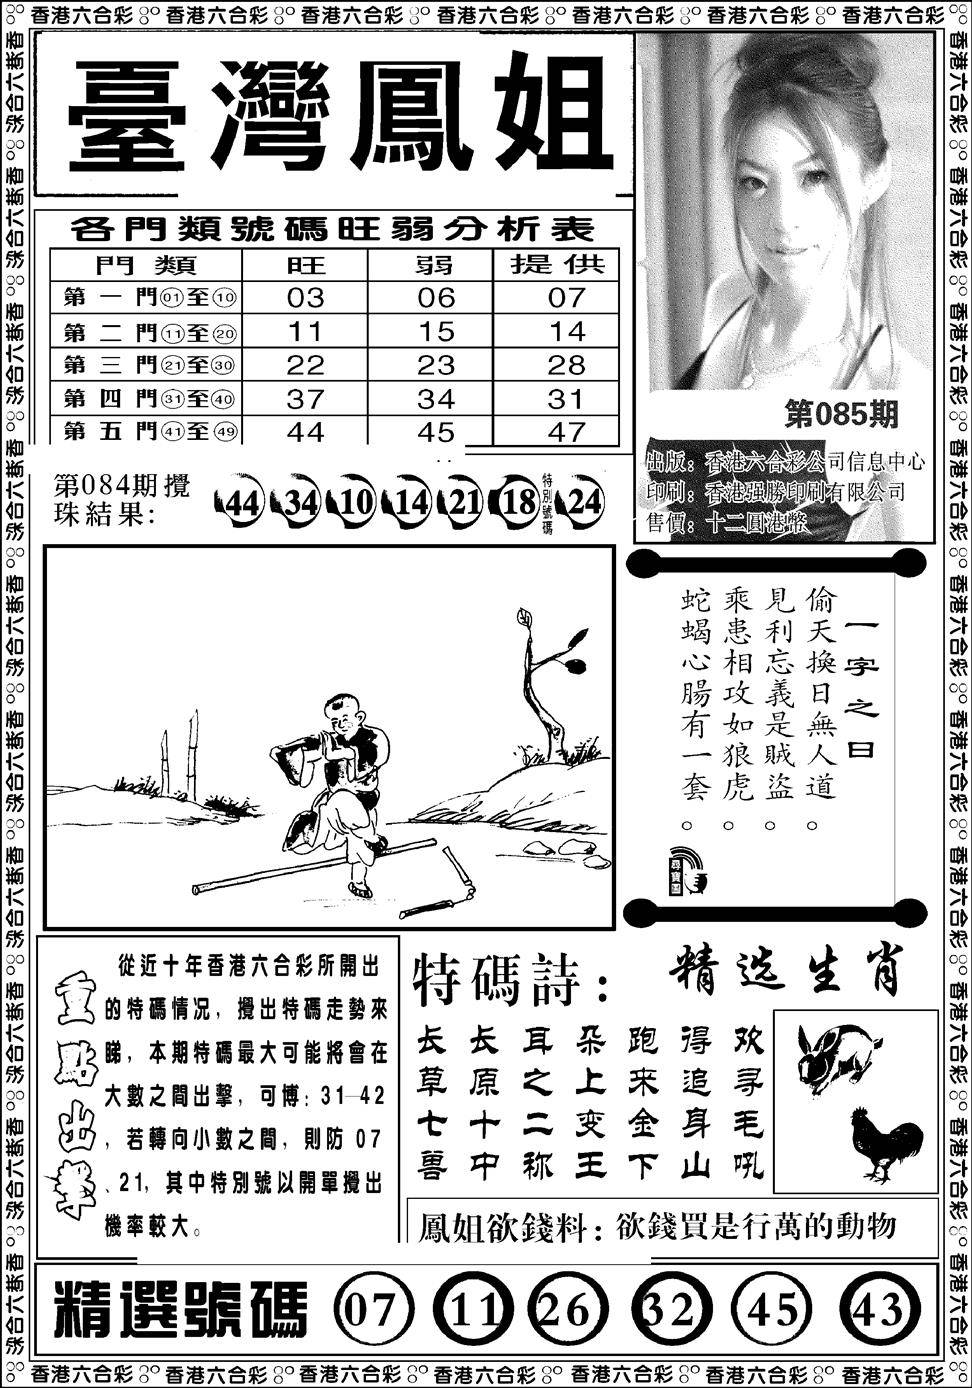 香港六合彩 香港六合彩 香港六合彩 香港六合彩 香港六合彩 香港六合彩 香港六合彩
臺灣鳳姐
各門類號碼旺弱分析表
門類 旺 弱 提供
第一門01至10 03 06 07
第二門11至20 11 15 14
第三門21至30 22 23 28
第四門31至40 37 34 31
第五門41至49 44 45 47
第084期攪
珠結果:
44 34 10 14 21 18 特別號碼 24
第085期
出版：香港六合彩公司信息中心
印刷：香港强勝印刷有限公司
售價：十二圓港幣
一字之曰
偷天換日無人道。
見利忘義是賊盜。
乘患相攻如狼虎。
蛇蝎心腸有一套。
尋寶圖
重點出擊
從近十年香港六合彩所開出
的特碼情况，攪出特碼走勢來
睇，本期特碼最大可能將會在
大數之間出擊，可博：31—42
，若轉向小數之間，則防 07
、21，其中特別號以開單攪出
機率較大。
特碼詩：
长长耳朵跑得欢
草原之上来追寻
七十二变金身毛
兽中称王下山吼
精选生肖
鳳姐欲錢料：欲錢買是行萬的動物
精選號碼 07 11 26 32 45 43
香港六合彩 香港六合彩 香港六合彩 香港六合彩 香港六合彩 香港六合彩 香港六合彩